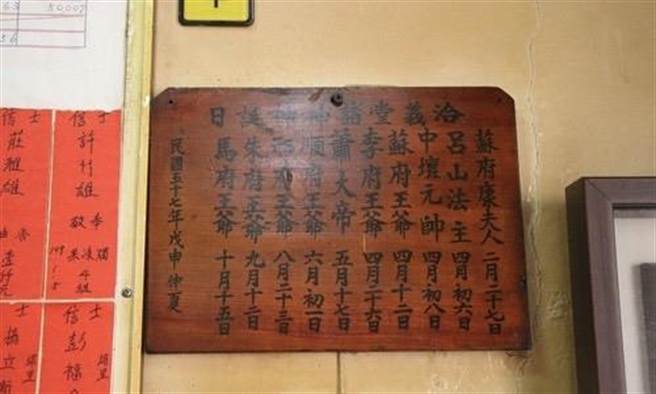 洽義堂諸神佛誕日
蘇府康夫人 二月二十七日
呂山法主 四月初六日
中壇元帥 四月初八日
蘇府王爺 四月十二日
李府王爺 四月二十六日
蕭大帝 五月十七日
順府王爺 六月初一日
邢府王爺 八月二十三日
朱府王爺 九月十二日
馬府王爺 十月十五日
民國五十七年戊申仲夏
信士
許竹雄
敬奉
信士
莊雅雄
信士
彭